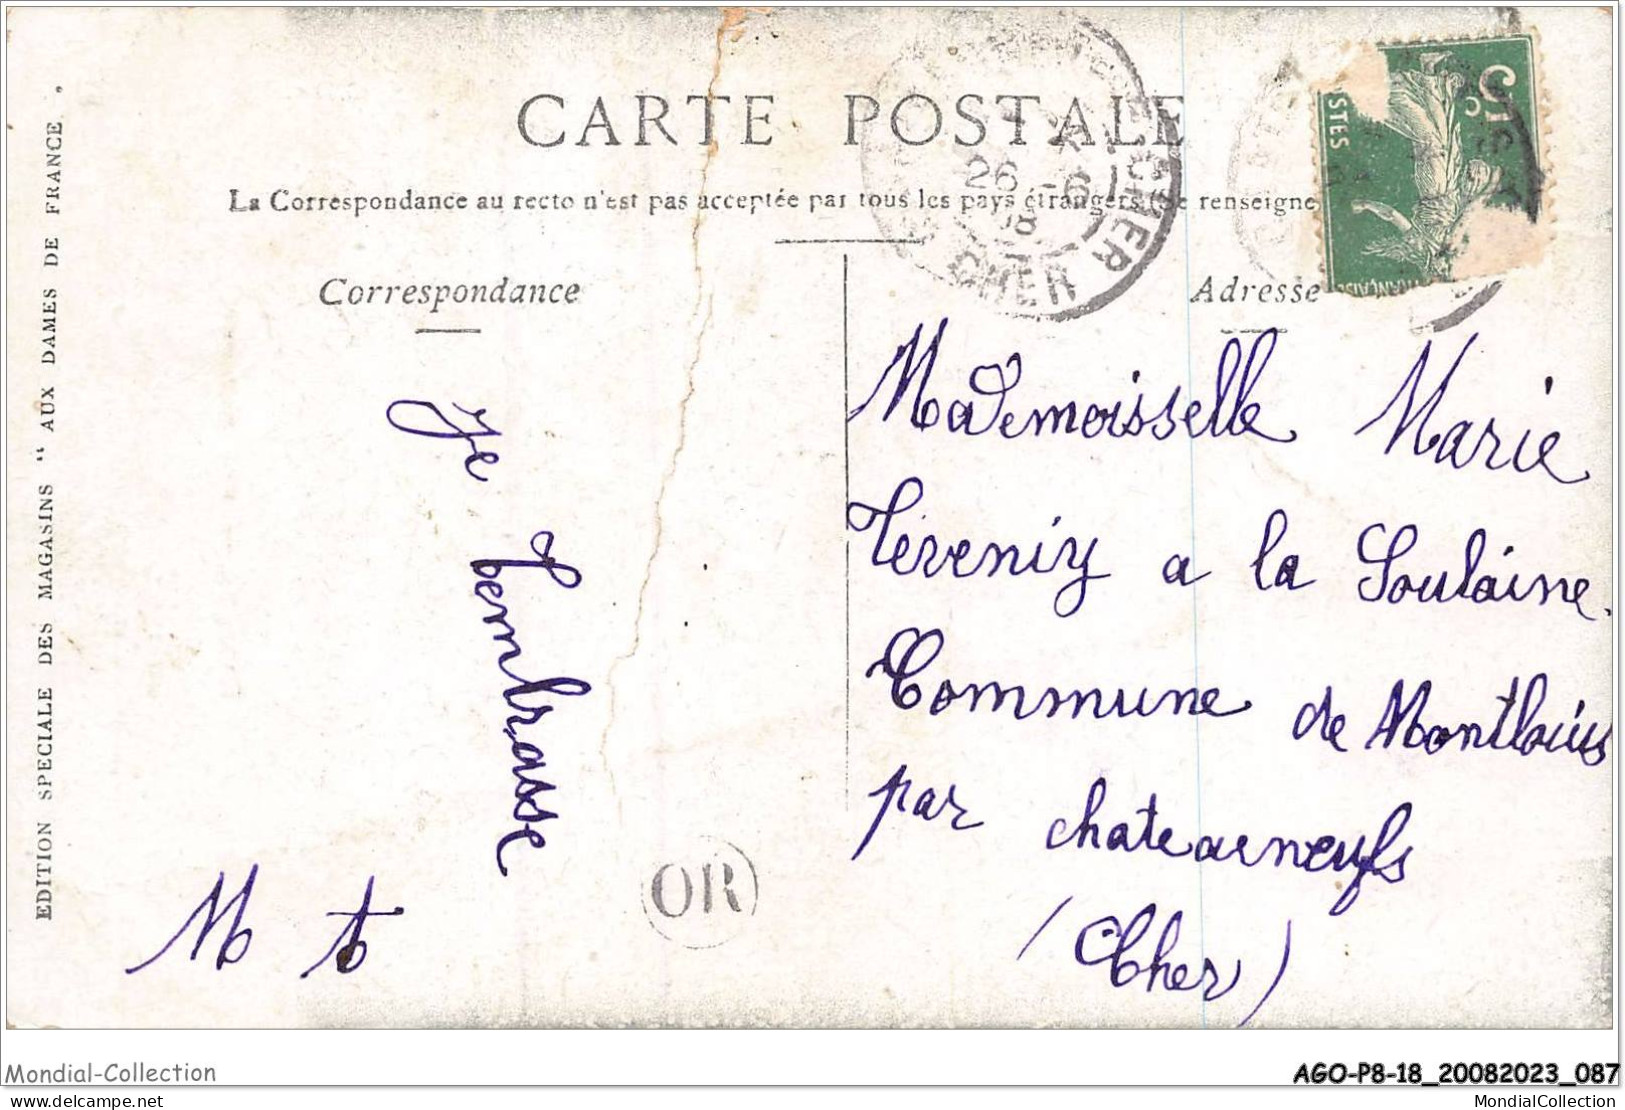 CARTE POSTALE
La Correspondance au recto n'est pas acceptée par tous les pays étrangers (Se renseigne
Correspondance
Adresse
EDITION SPECIALE DES MAGASINS “ AUX DAMES DE FRANCE .
Je
tembrasse
M t
OR
Mademoisselle Marie
à la Soulaine
Commune de Montlouis
par chateauneufs
(Cher)
26 -6
CHER
CHER
5c
Mondial-Collection
AGO-P8-18_20082023_087
www.delcampe.net
MondialCollection